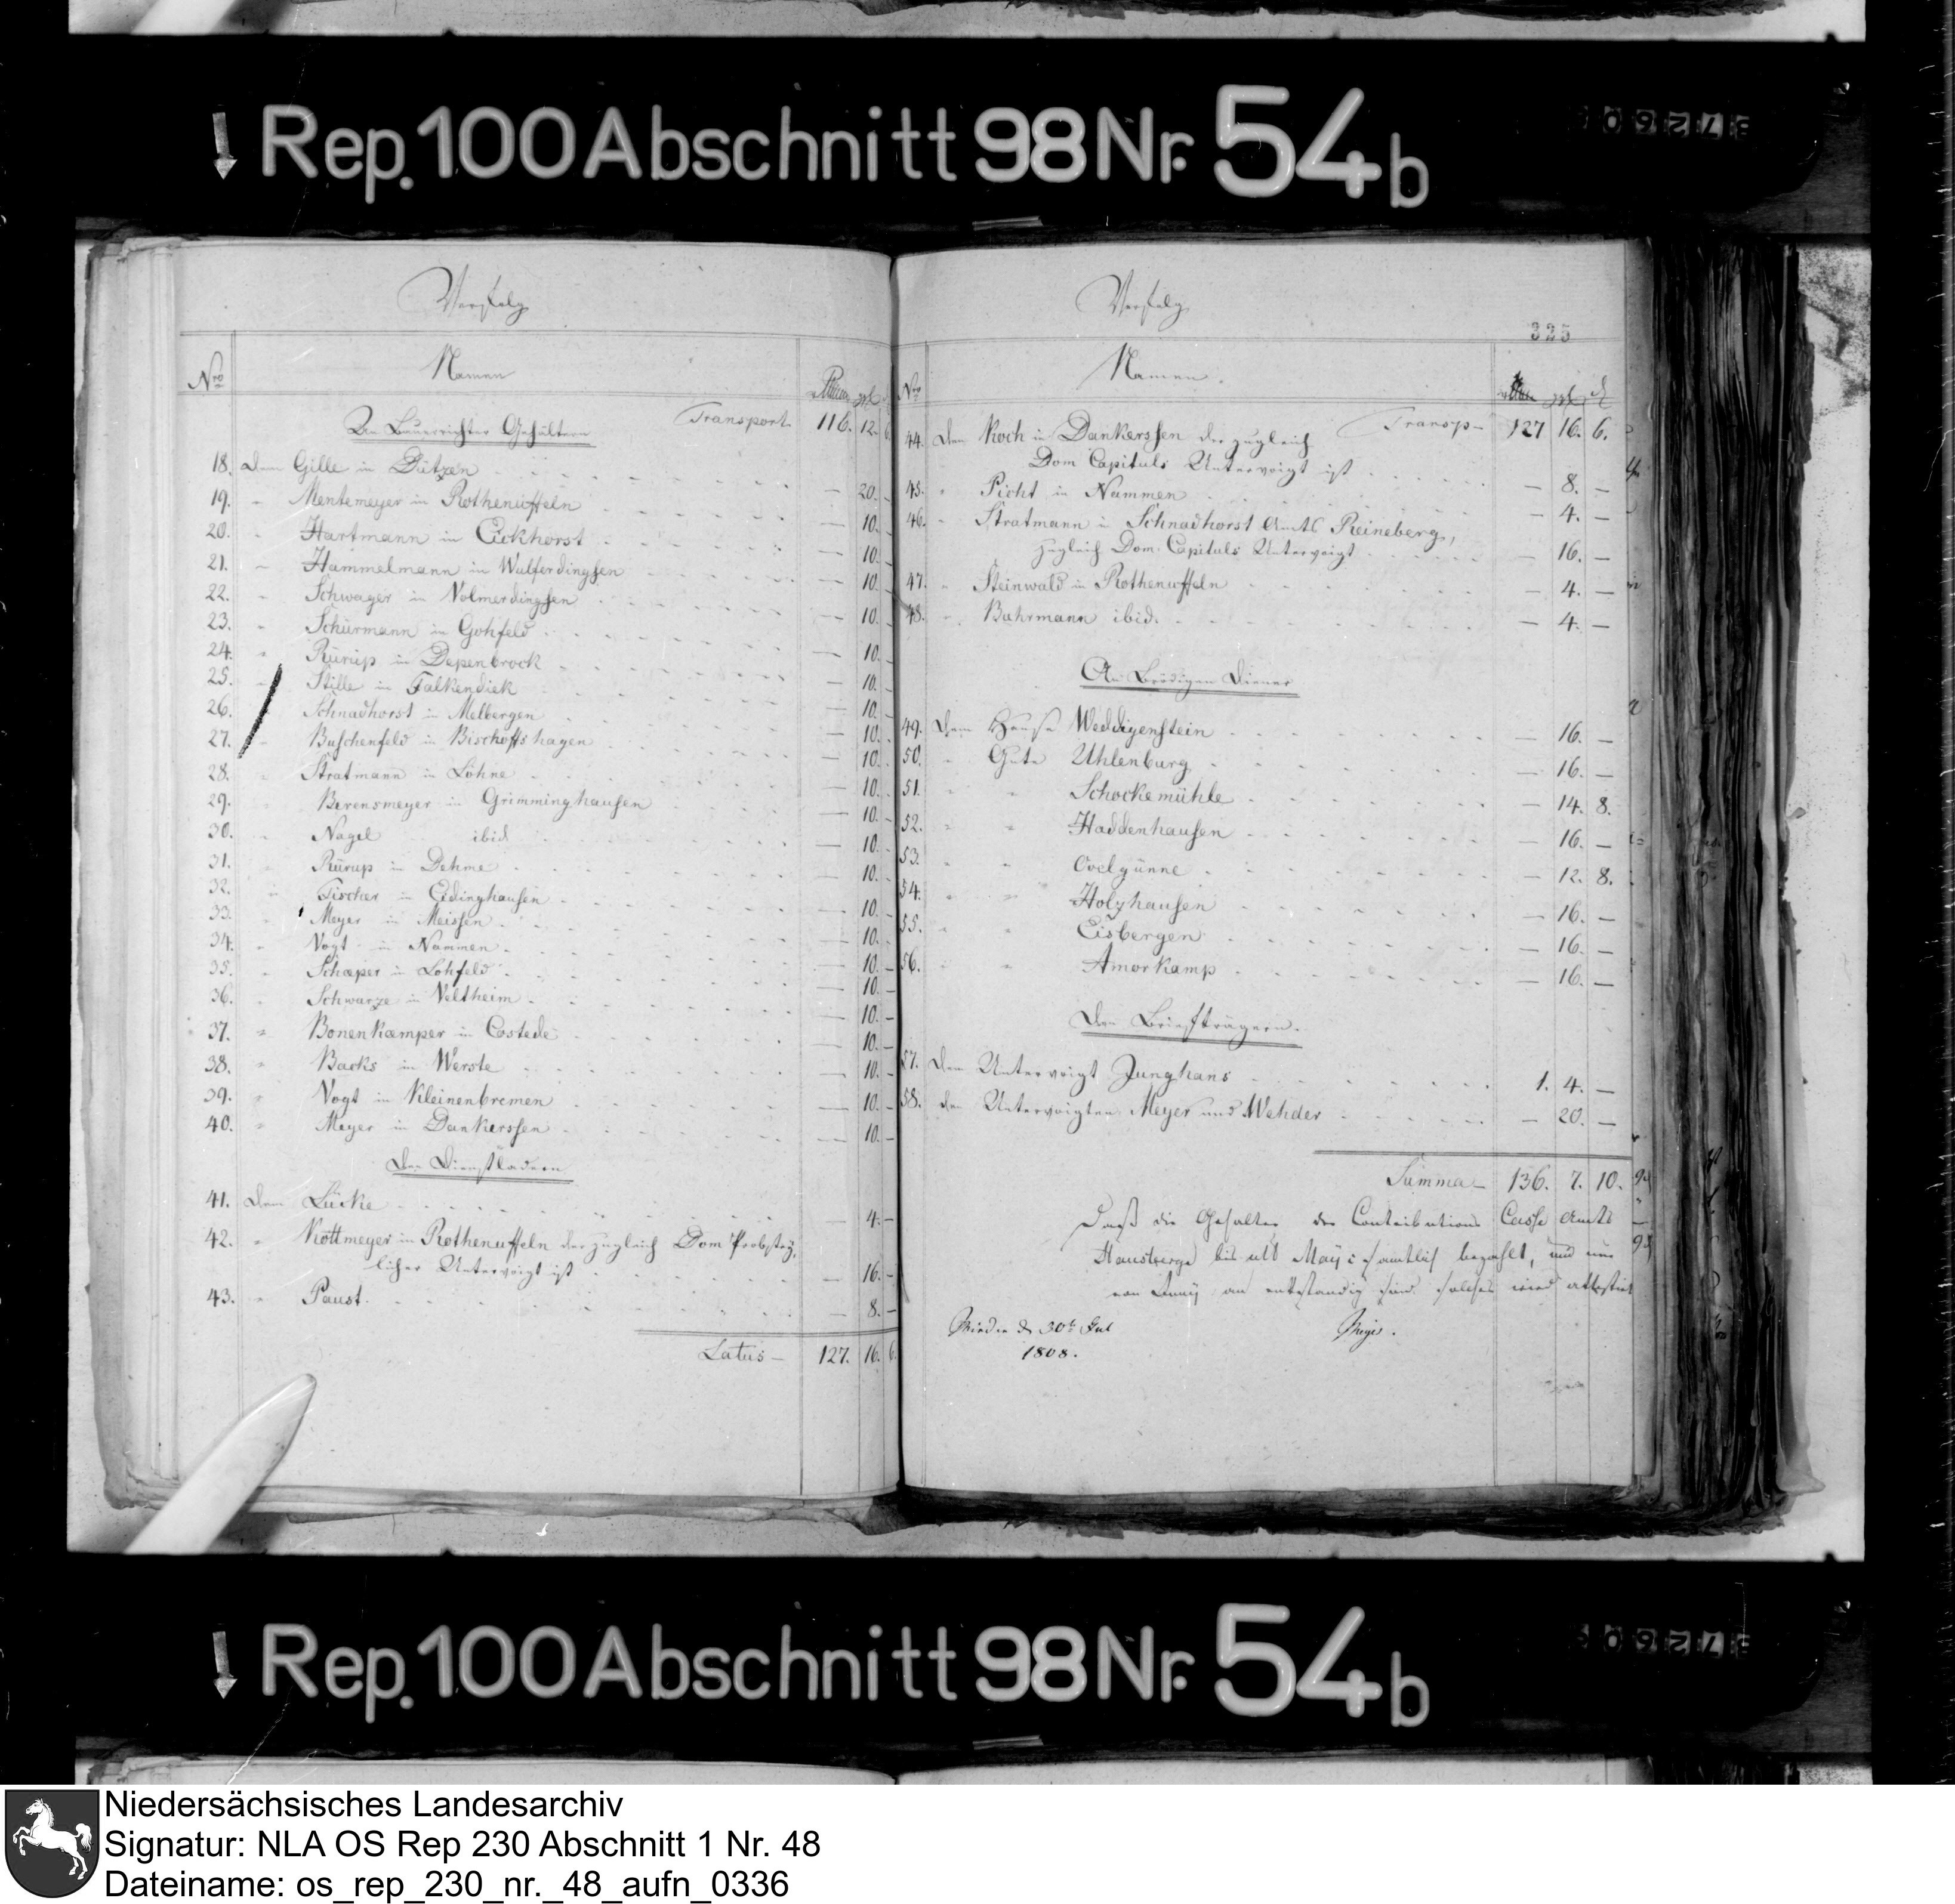 Rep. 100 Abschnitt 98 Nr. 54b
Verfolg
Nro
Namen
Rthlr
An Bauerrichter Gehältern Transport 116. 12. 6.
18. dem Gille in Dützen — 20. —
19. " Mentemeyer in Rothenuffeln — 10. —
20. " Hartmann in Eickhorst — 10. —
21. " Hammelmann in Wulferdingsen — 10. —
22. " Schwager in Volmerdingsen — 10. —
23. " Schürmann in Gohfeld — 10. —
24. " Rürup in Depenbrock — 10. —
25. " Stille in Falkendiek — 10. —
26. " Schnadhorst in Melbergen — 10. —
27. " Buschenfeld in Bischoffshagen — 10. —
28. " Stratmann in Löhne — 10. —
29. " Berensmeyer in Grimminghausen — 10. —
30. " Nagel ibid — 10. —
31. " Rürup in Dehme — 10. —
32. " Fischer in Eidinghausen — 10. —
33. " Meyer in Meissen — 10. —
34. " Vogt in Nammen — 10. —
35. " Schæper in Lohfeld — 10. —
36. " Schwarze in Veltheim — 10. —
37. " Bonenkæmper in Costede — 10. —
38. " Backs in Werste — 10. —
39. " Vogt in Kleinenbremen — 10. —
40. " Meyer in Dankerssen — 10. —
Den Dienstladern
41. dem Lücke — 4. —
42. " Kottmeyer in Rothenuffeln der zugleich Dom Probstey,
licher Untervoigt ist — 16. —
43. " Paust — 8. —
Latus — 127. 16. 6.
Verfolg
325
Nro
Namen.
44. dem Koch in Dankerssen der zugleich Transp — 127 16. 6.
Dom Capituls Untervoigt ist — 8. —
45. " Picht in Nammen — 4. —
46. " Stratmann in Schnadhorst Amts Reineberg,
zugleich Dom Capituls Untervoigt — 16. —
47. " Steinwald in Rothenuffeln — 4. —
48. " Bahrmann ibid. — 4. —
An Diener
49. Dem Hause Weddigenstein — 16. —
50. " Gute Uhlenburg — 16. —
51. " " Schockemühle — 14. 8.
52. " " Haddenhausen — 16. —
53. " " Ovelgünne — 12. 8.
54. " " Holzhausen — 16. —
55. " " Eisbergen — 16. —
56. " " Amorkamp — 16. —
Den Briefträgern.
57. dem Untervoigt Junghans 1. 4. —
58. den Untervoigten Meyer und Wehder — 20. —
Summa — 136. 7. 10.
Daß die Gehalter der Contributions Casse Amts
Hausberge bis ult May c. samtlich bezahlt, und nur
von Juny an solches wird attestirt
Minden d. 30t Jul Meyer.
1808.
Rep. 100 Abschnitt 98 Nr. 54b
Niedersächsisches Landesarchiv
Signatur: NLA OS Rep 230 Abschnitt 1 Nr. 48
Dateiname: os_rep_230_nr._48_aufn_0336